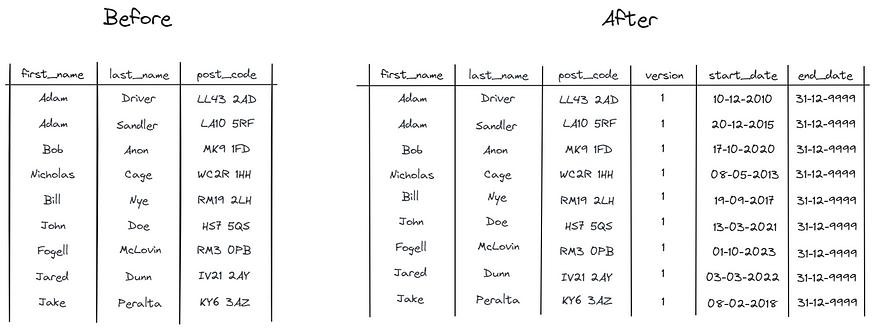 Before
first_name last_name post_code
Adam Driver LL43 2AD
Adam Sandler LA10 5RF
Bob Anon MK9 1FD
Nicholas Cage WC2R 1HH
Bill Nye RM19 2LH
John Doe HS7 5QS
Fogell McLovin RM3 0PB
Jared Dunn IV21 2AY
Jake Peralta KY6 3AZ
After
first_name last_name post_code version start_date end_date
Adam Driver LL43 2AD 1 10-12-2010 31-12-9999
Adam Sandler LA10 5RF 1 20-12-2015 31-12-9999
Bob Anon MK9 1FD 1 17-10-2020 31-12-9999
Nicholas Cage WC2R 1HH 1 08-05-2013 31-12-9999
Bill Nye RM19 2LH 1 19-09-2017 31-12-9999
John Doe HS7 5QS 1 13-03-2021 31-12-9999
Fogell McLovin RM3 0PB 1 01-10-2023 31-12-9999
Jared Dunn IV21 2AY 1 03-03-2022 31-12-9999
Jake Peralta KY6 3AZ 1 08-02-2018 31-12-9999